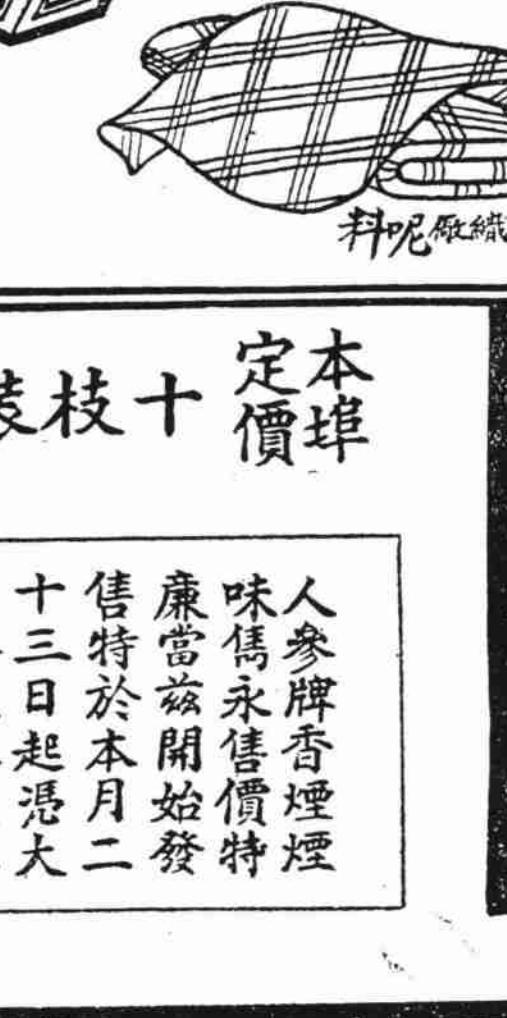 織廠呢料
本埠
定價
十枝
人參牌香煙煙
味雋永售價特
廉當茲開始發
售特於本月二
十三日起憑大